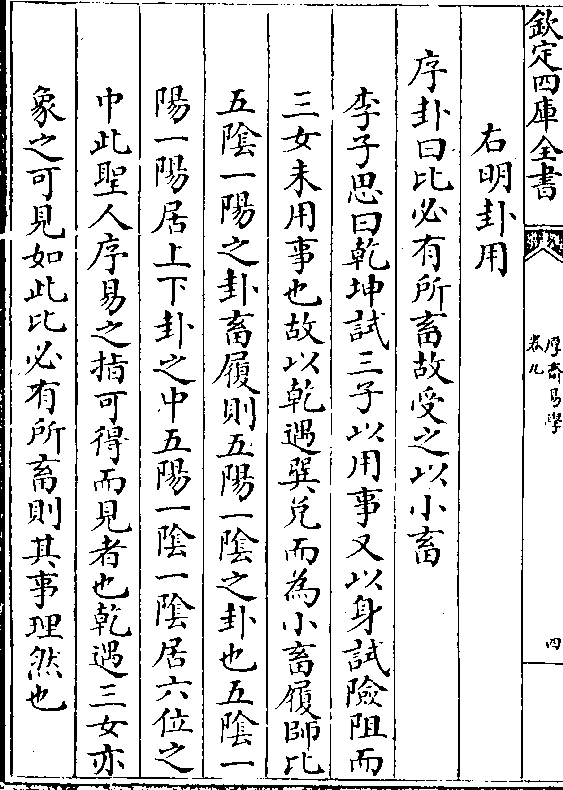 欽定四庫全書
厚齋易學
卷九
四
右明卦用
序卦曰比必有所畜故受之以小畜
李子思曰乾坤試三子以用事又以身試險阻而
三女未用事也故以乾遇巽兌而為小畜履師比
五陰一陽之卦畜履則五陽一陰之卦也五陰一
陽一陽居上下卦之中五陽一陰一陰居六位之
中此聖人序易之指可得而見者也乾遇三女亦
象之可見如此比必有所畜則其事理然也